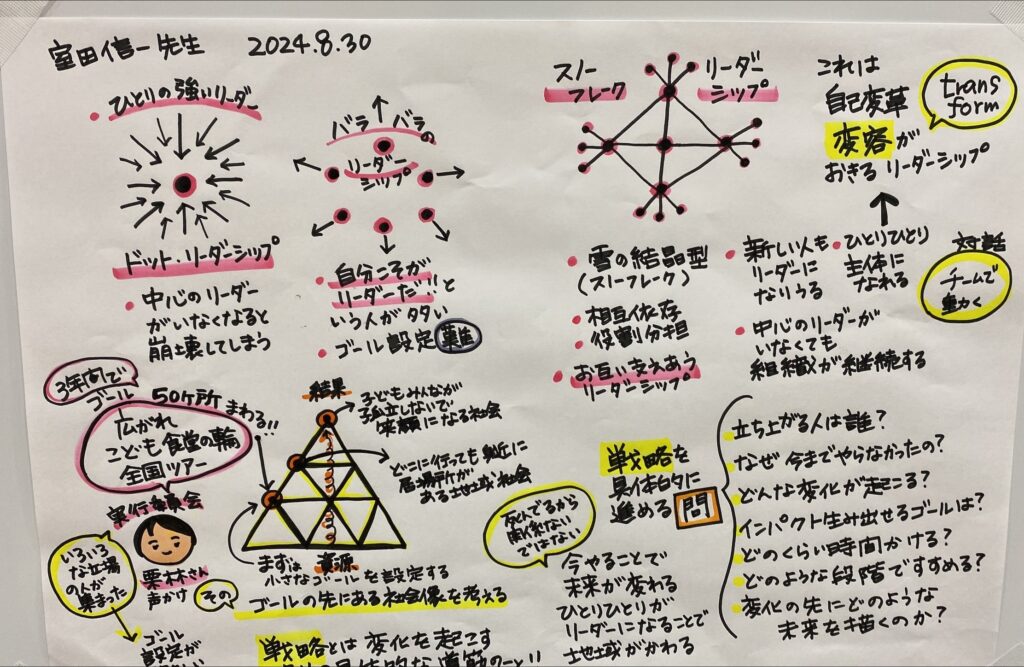 室田信一先生 2024.8.30
ひとりの強いリーダー
ドット・リーダーシップ
中心のリーダー
がいなくなると
崩壊してしまう
バラバラの
リーダー
シップ
自分こそが
リーダーだ!!と
いう人が多い
ゴール設定 難
スノー
フレーク
リーダー
シップ
雪の結晶型
(スノーフレーク)
相互依存
役割分担
お互い支えあう
リーダーシップ
これは
自己変革
変容が
おきるリーダーシップ
trans
form
新しい人も
リーダーに
なりうる
ひとりひとり
主体に
なれる
対話
チームで
動く
中心のリーダーが
いなくても
組織が継続する
3年間で
ゴール
50ヶ所
まわる!!
広がれ
こども食堂の輪
全国ツアー
実行委員会
栗林さん
声かけ
いろいろ
な立場
の人が
集まった
ゴール
設定が
結果
子どもみんなが
孤立しないで
笑顔になる社会
どこに行っても身近に
居場所が
ある地域社会
資源
まずは
小さなゴールを設定する
その
ゴールの先にある社会像を考える
戦略とは変化を起こす
戦略を
具体的に
進める
問
立ち上がる人は誰?
なぜ今までやらなかったの?
どんな変化が起こる?
インパクト生み出せるゴールは?
どのくらい時間かける?
どのような段階ですすめる?
変化の先にどのような
未来を描くのか?
ではない
今やることで
未来が変わる
ひとりひとりが
リーダーになることで
地域がかわる